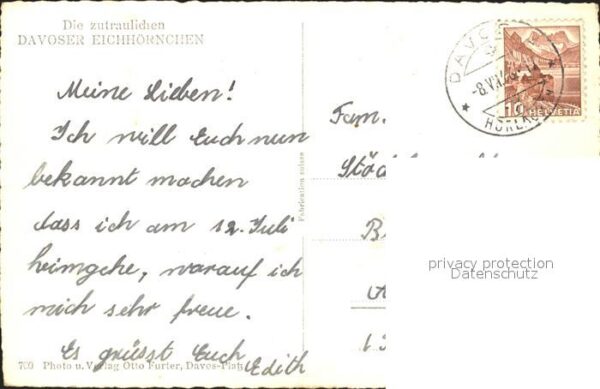 Die zutraulichen
DAVOSER EICHHÖRNCHEN
Meine Lieben!
Ich will Euch nun
bekannt machen
dass ich am 12. Juli
heimgehe, worauf ich
mich sehr freue.
Es grüsst Euch
Edith
700 Photo u. Verlag Otto Furter, Davos-Platz
Fabrication suisse
DAVOS
10 HELVETIA
Fam.
privacy protection
Datenschutz